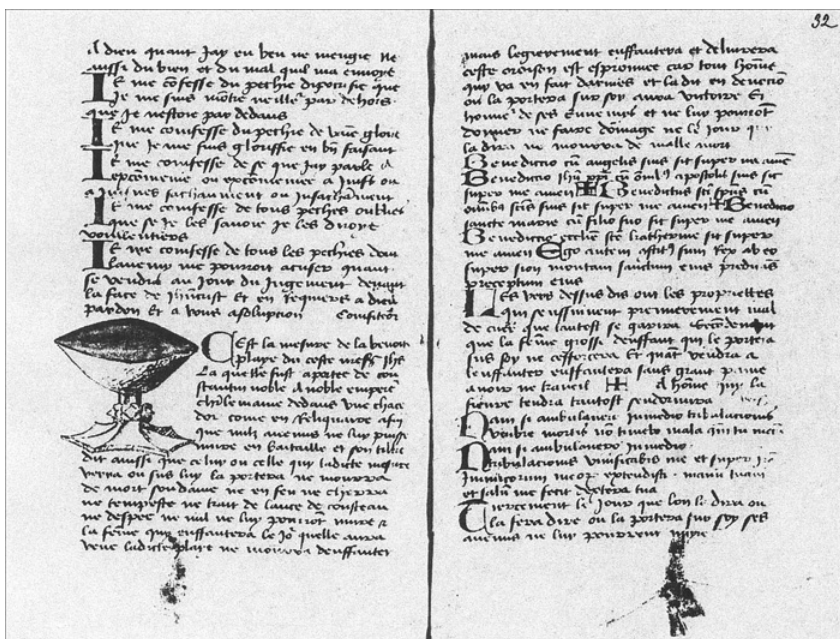 A dieu quant Jay eu ben ne mengie Ne
aussi du bien et du mal quil ma envoye
IE me cofesse du pechie dipocrisie que
Je me suis mõtre meilleʳ par dehors
que Je nestoie par dedans
IE me comfesse du pechie de vaine gloire
que Je me suis glorifie en bn faisant
IE me comfesse de se que Jay parle a
excomenie ou excomenice a Juifz ou
a sachament ou insachãment
IE me comfesse de tous peches oublies
que se Je les savoie Je les diroye
voulentiers
IE me comfesse de tous les pechies dont
lanemy me pourroit acuser quant
se vendra au Jour du Jugement devant
la face de Jhucrist Et en Requiers a dieu
pardon Et a vous asolution Confiteor
CEst la mesure de la benoite
playe du coste
La quelle fust aportee de con
stantin noble a noble empere
charlemaine dedans une chace
dor come en Reliquaire afin
que nulz anemis ne luy puisse
nuire en bataille et son
dit aussi que celuy ou celle qui ladicte mesure
verra ou sus luy la portera ne mourra
de mort soudame ne en feu ne cherra
ne tempeste ne trait de lance de cousteau
ne despee ne nul ne luy pouroit nuire &
la feme que enffantera le Jo' quelle aura
veue ladicte playe ne mourra denffanter
32
mais legierement enffantera et delivrera
ceste oroison est esprouvee car tout home
qui va en fait darmes et la dit en devocion
ou la portera sur soy aura victoire Et
honneʳ de ses Ennemys et ne luy pouront
donner ne faire domage ne le Jour que
la dira ne mourra de malle mort
Benedictio cu angelis suis sit super me amen
Benedictio cu apostolis suis sit
super me amen ✠ Benedictus scti spus cu
omibus sctis suis sit super me amen ✠ Benedictio
sancte marie cu filio suo sit super me amen
Benedictio ecclesie ste katherine sit super
me amen Ego autem sum Rex ab eo
super sion montam sanctum eius predicans
preceptum eius
LEs vers dessus dis ont les proprietes
qui sensuiuent premierement mal
de que tantost se garira Secondement
que la feme grosse denffant qui le portera
sus soy ne Et quat vendra a
lenffanter enffantera sans grant paine
a nouir ne travail ✠ A home qui la
fieure tendra tantost
Nam si ambulavero in medio tribulacionis
vmbre mortis no timebo mala qm tu mecu
Nam si ambulavero in medio
tribulacionis vivificabis me et super
inimicorum meoz extendisti manu tuam
et saluu me fecit dextera tua
Tiercement le Jour que lon le dira ou
la fera dire ou la portera sur soy ses
anemis ne luy pourront nuyre